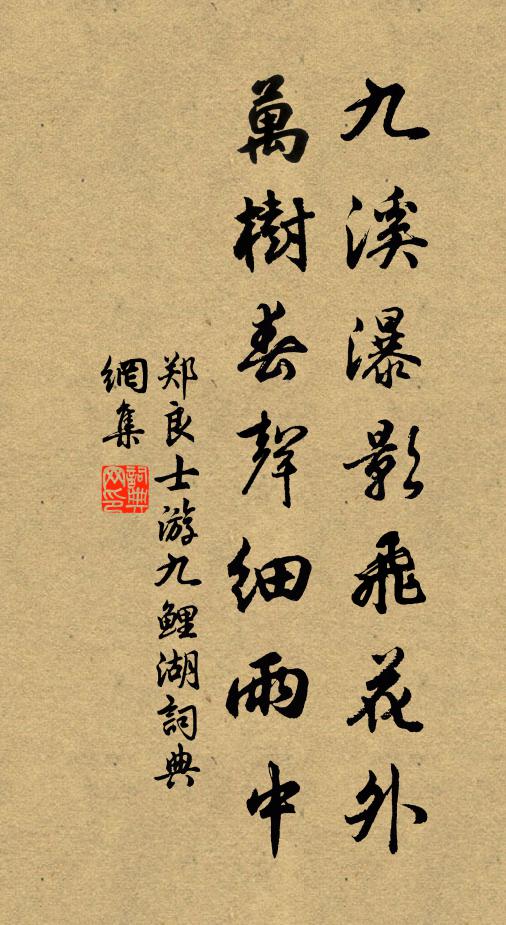 九溪瀑影飛花外
萬樹春聲細雨中
郑良士游九鯉湖詞典
網集
詞典網印